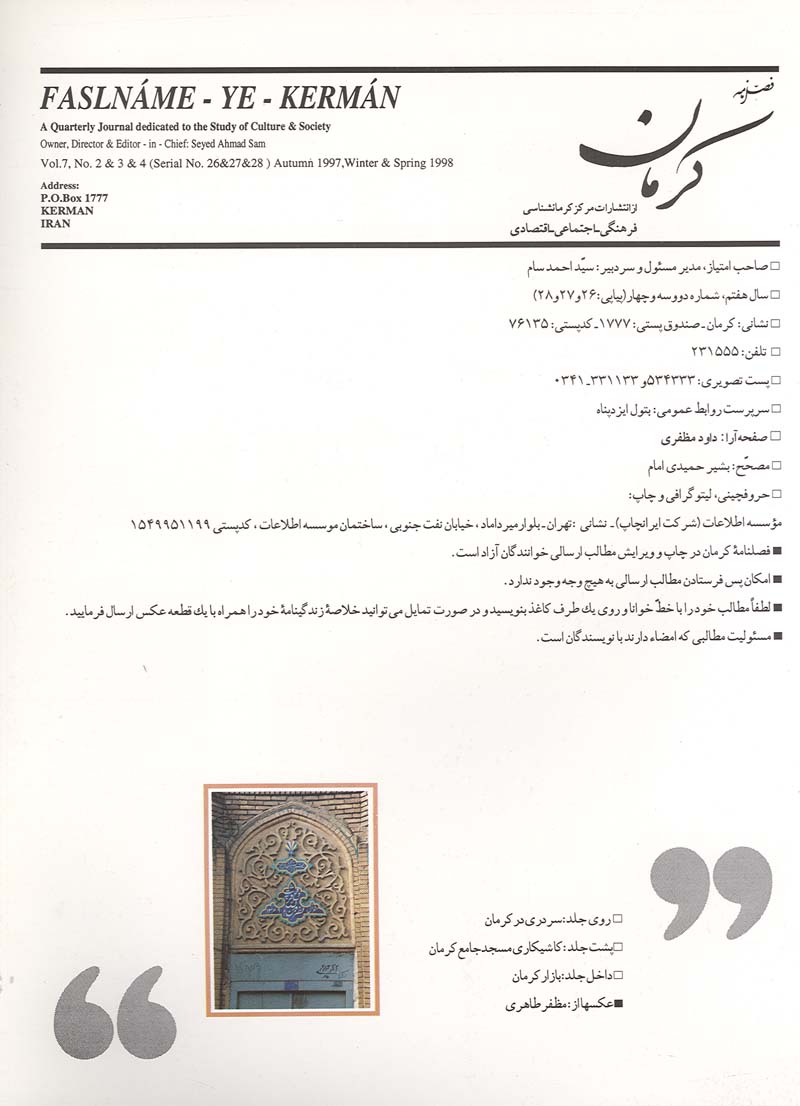 FASLNÁME - YE - KERMÁN
A Quarterly Journal dedicated to the Study of Culture & Society
Owner, Director & Editor - in - Chief: Seyed Ahmad Sam
Vol.7, No. 2 & 3 & 4 (Serial No. 26&27&28 ) Autumn 1997,Winter & Spring 1998
Address:
P.O.Box 1777
KERMAN
IRAN
فصلنامه
کرمان
از انتشارات مرکز کرمانشناسی
فرهنگی-اجتماعی-اقتصادی
□ صاحب امتیاز، مدیر مسئول و سردبیر: سیّد احمد سام
□ سال هفتم، شماره دو و سه و چهار(پیاپی:۲۶و۲۷و۲۸)
□ نشانی: کرمان ـ صندوق پستی: ۱۷۷۷ـ کدپستی: ۷۶۱۳۵
□ تلفن: ۲۳۱۵۵۵
□ پست تصویری: ۵۳۴۳۳۳و ۳۳۱۱۳۳ـ۰۳۴۱
□ سرپرست روابط عمومی: بتول ایزدپناه
□ صفحه‌آرا: داود مظفری
□ مصحّح: بشیر حمیدی امام
□ حروفچینی، لیتوگرافی و چاپ:
مؤسسه اطلاعات (شرکت ایرانچاپ)ـ نشانی :تهران ـ بلوار میرداماد، خیابان نفت جنوبی، ساختمان موسسه اطلاعات، کدپستی ۱۵۴۹۹۵۱۱۹۹
■ فصلنامهٔ کرمان در چاپ و ویرایش مطالب ارسالی خوانندگان آزاد است.
■ امکان پس فرستادن مطالب ارسالی به هیچ وجه وجود ندارد.
■ لطفاً مطالب خود را با خطّ خوانا و روی یك طرف کاغذ بنویسید و در صورت تمایل می‌توانید خلاصهٔ زندگینامهٔ خود را همراه با یك قطعه عکس ارسال فرمایید.
■ مسئولیت مطالبی که امضاء دارند با نویسندگان است.
□ روی جلد:سردری در کرمان
□ پشت جلد:کاشیکاری مسجد جامع کرمان
□ داخل جلد:بازار کرمان
■ عکسها از: مظفر طاهری